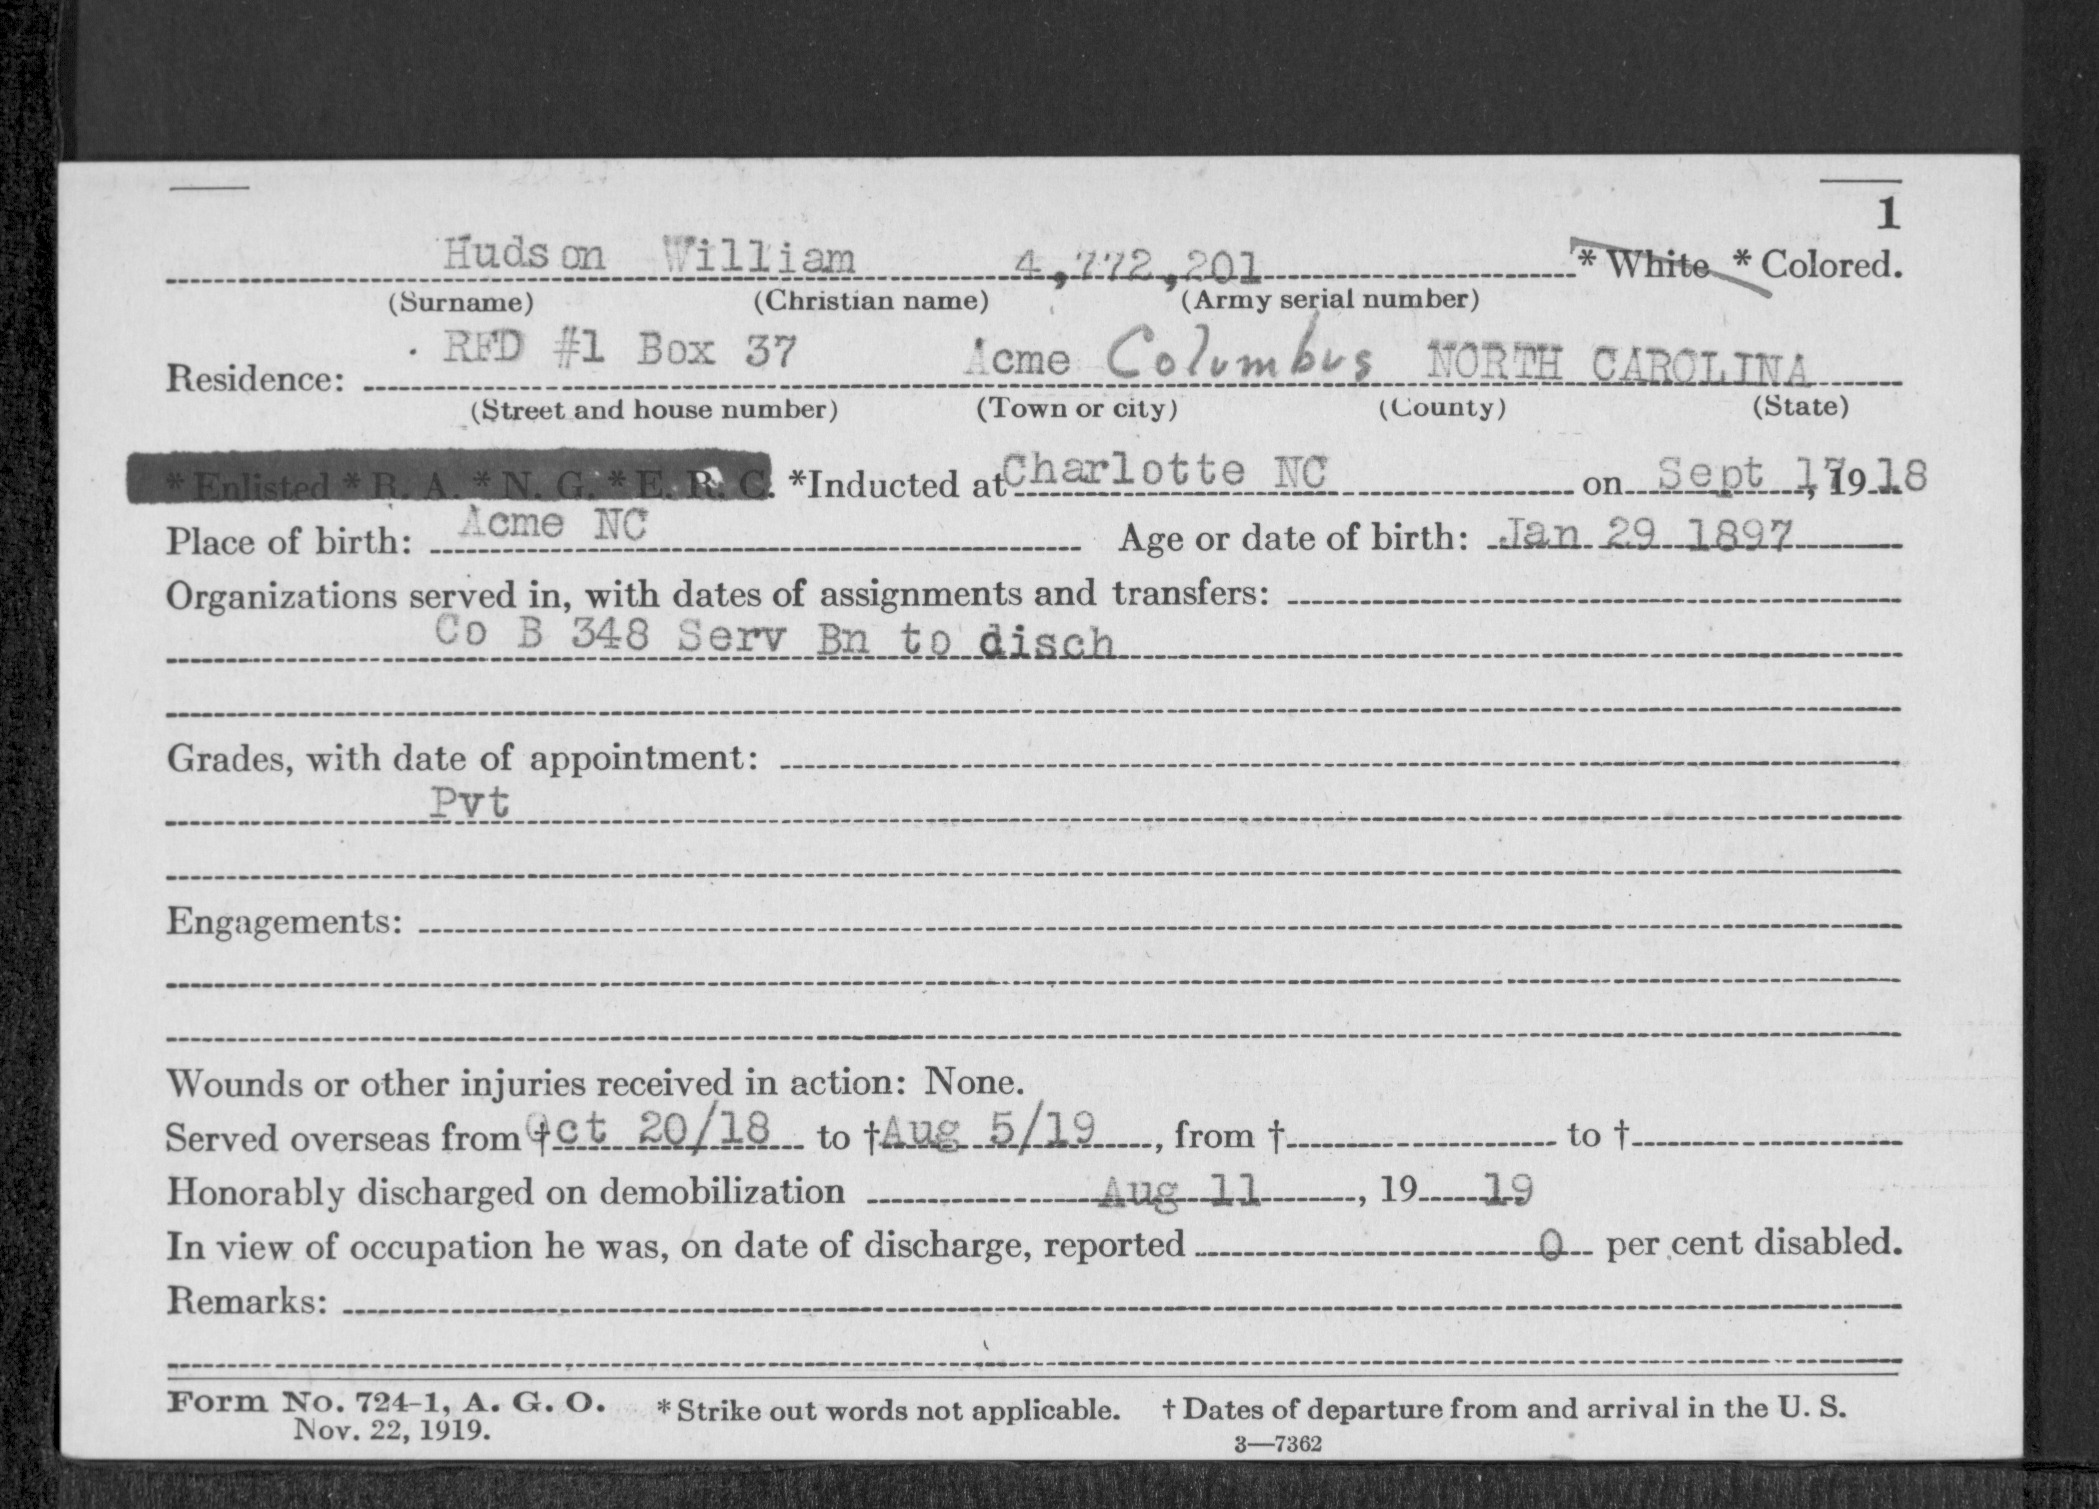 1
Hudson William 4,772,201 * White * Colored.
(Surname) (Christian name) (Army serial number)
RFD #1 Box 37 Acme Columbus NORTH CAROLINA
Residence:
(Street and house number) (Town or city) (County) (State)
* Enlisted * R. A. * N. G. * E. R. C. *Inducted at Charlotte NC on Sept 17, 19 18
Place of birth: Acme NC Age or date of birth: Jan 29 1897
Organizations served in, with dates of assignments and transfers:
Co B 348 Serv Bn to disch
Grades, with date of appointment:
Pvt
Engagements:
Wounds or other injuries received in action: None.
Served overseas from † Oct 20/18 to † Aug 5/19, from † to †
Honorably discharged on demobilization Aug 11, 19 19
In view of occupation he was, on date of discharge, reported 0 per cent disabled.
Remarks:
Form No. 724-1, A. G. O. * Strike out words not applicable. † Dates of departure from and arrival in the U. S.
Nov. 22, 1919.
3—7362